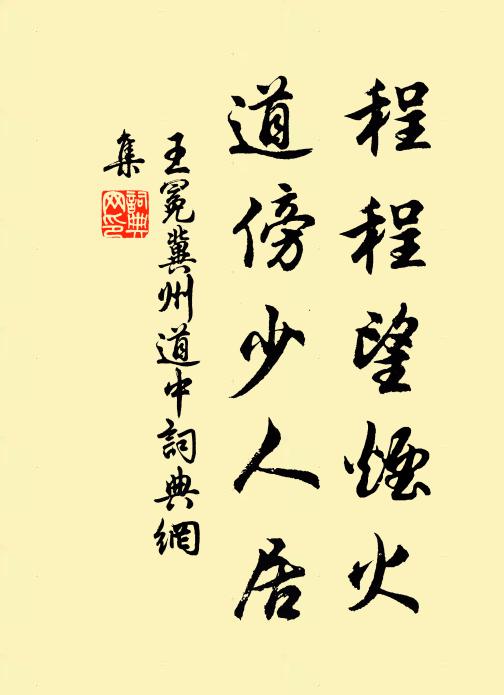 程程望煙火
道傍少人居
王冕冀州道中詞典網
集
詞典
网印